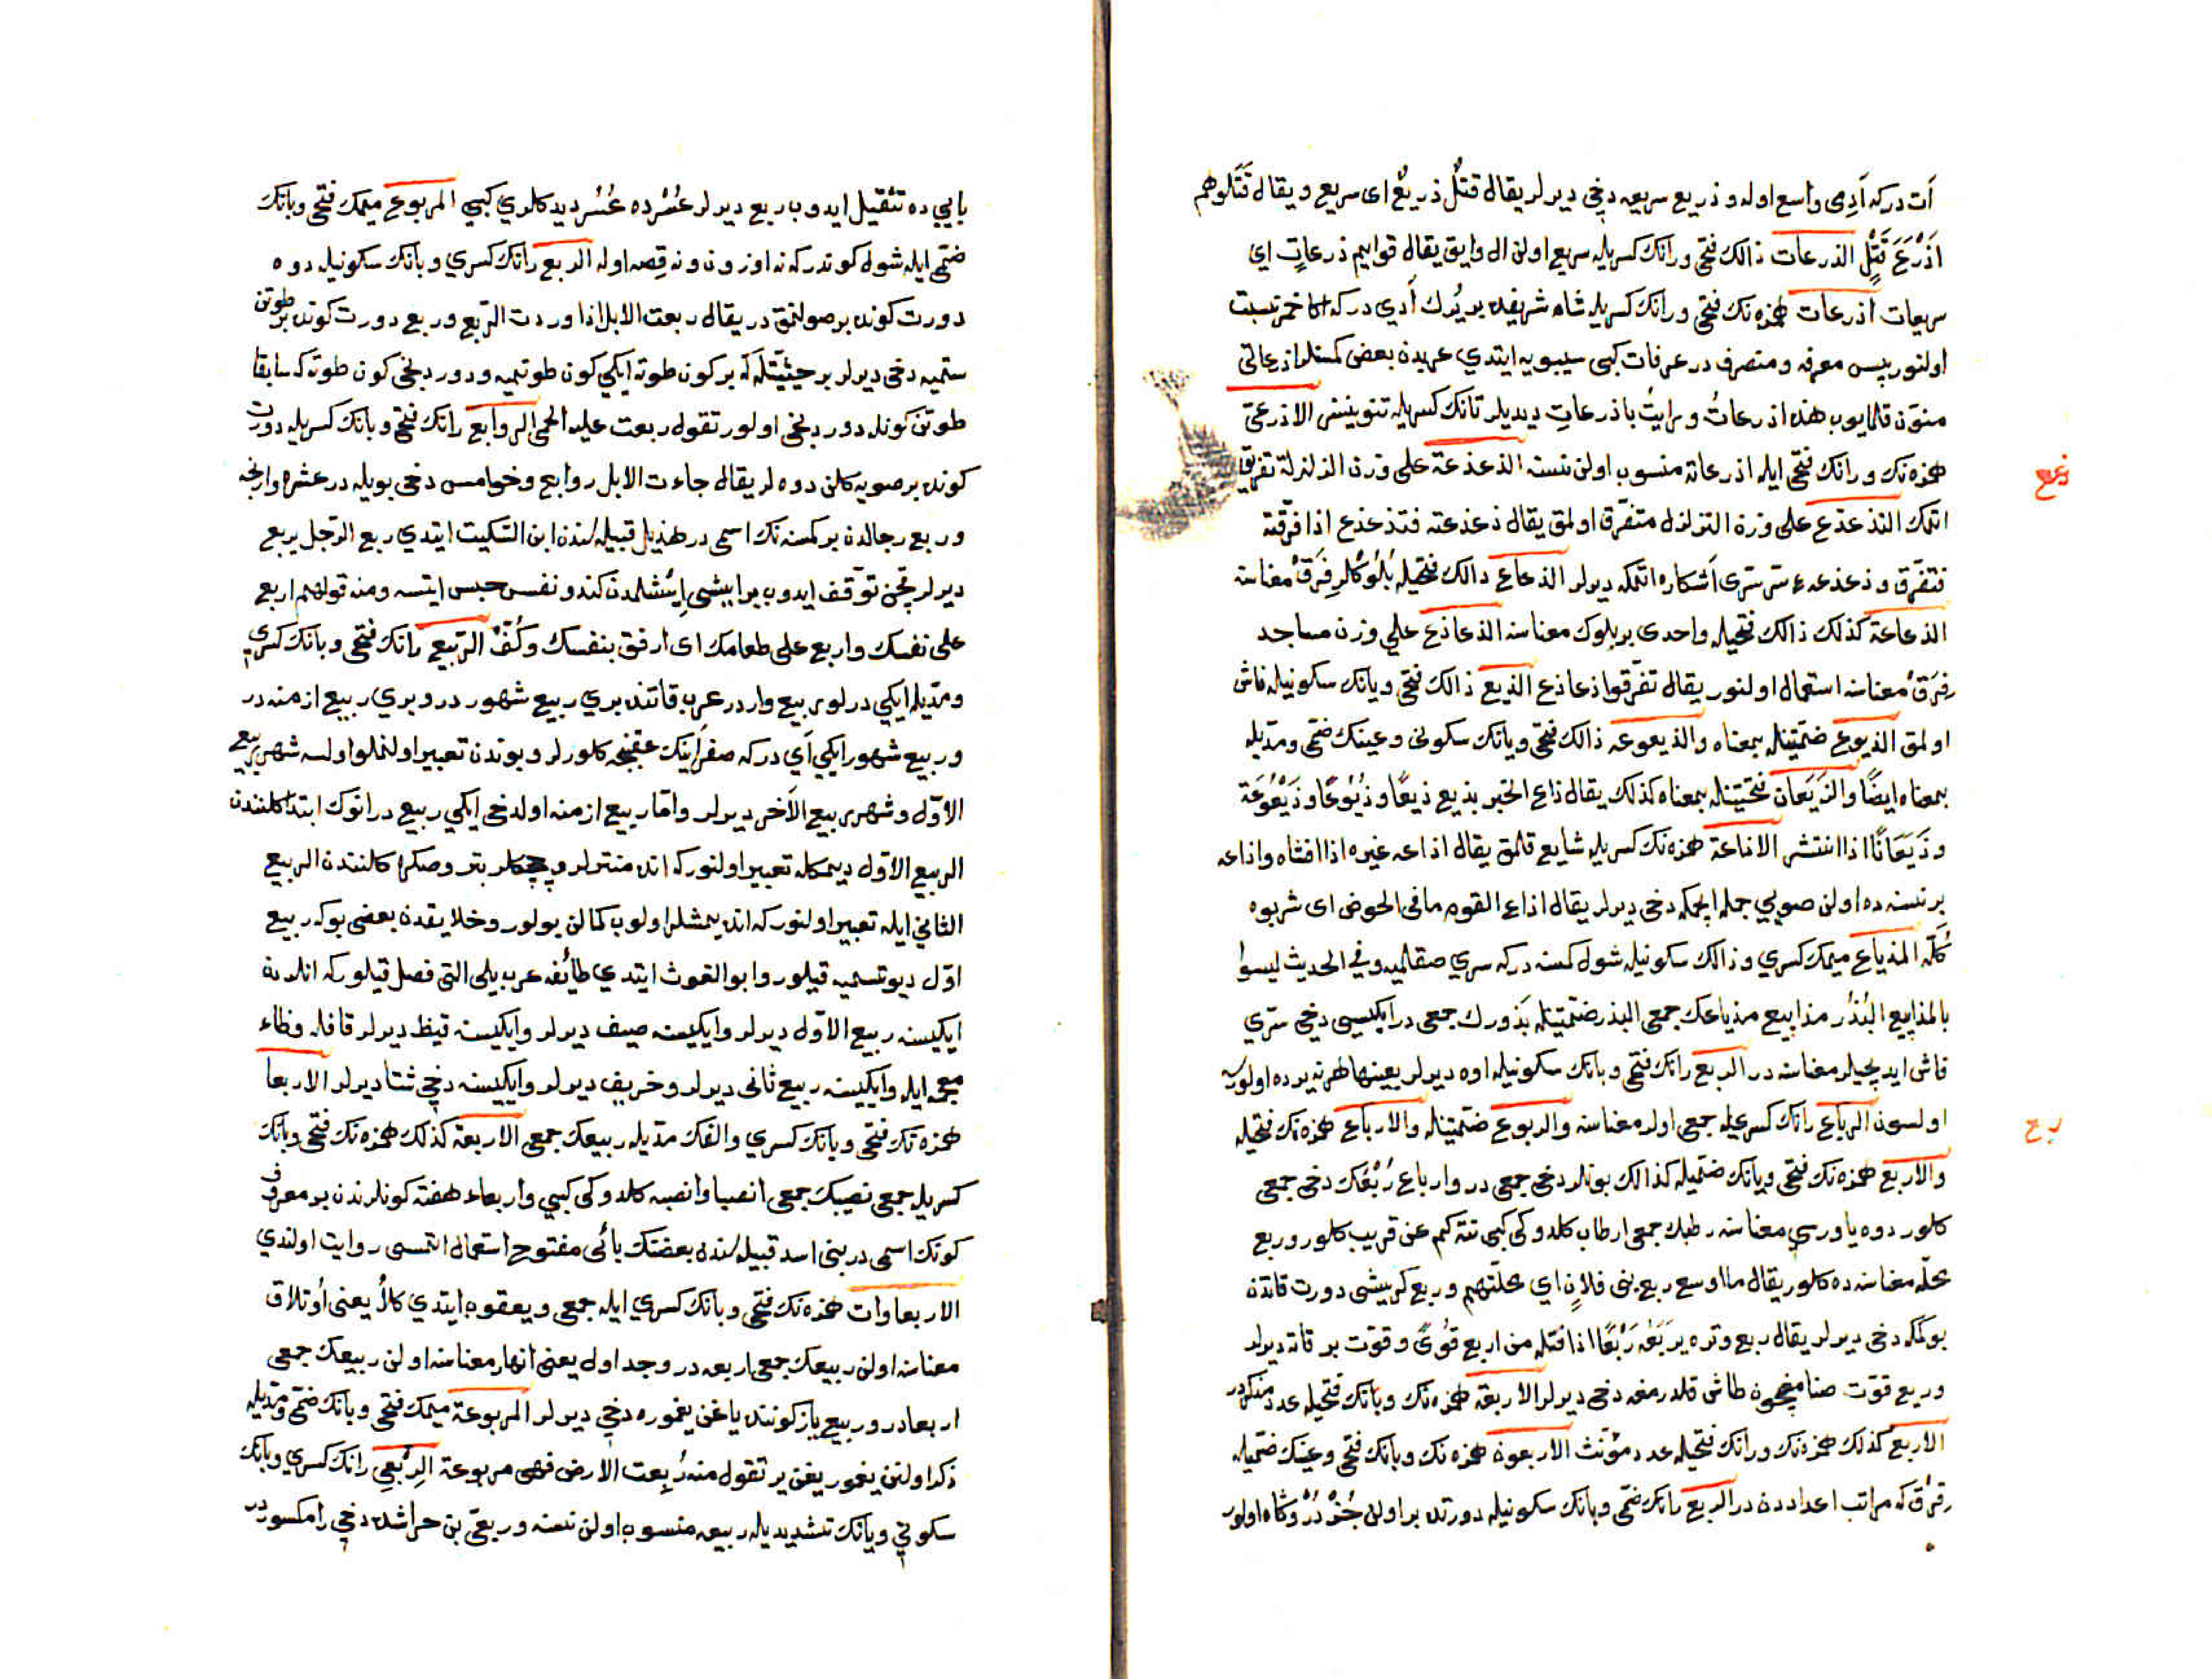 آت درکه آدی واسع اوله و ذریع سریعه دخی دیرلر یقال قتلٌ ذریعٌ ای سریع و یقال قتلوهم
اَذْرَعَ قَتْلٍ الذرعات ذالک فتحی و رانک کسریله سریع اولن الوایق یقال قوایم ذرعاتٍ ای
سریعات اذرعات همزه نک فتحی و رانک کسریله شام شریفده بر یُرک آدی درکه اکا خمر نسبت
اولنور پس معرفه و منصرف در عرفات کبی سیبویه ایتدی عربدن بعض کمسنلر اذرعاتی
منوّن قلمایوب هذه اذرعاتُ و رایتُ باذرعاتِ دیدیلر تانک کسریله تنوینسز الاذرعیّ
همزه نک و رانک فتحی ایله اذرعاته منسوب اولن نسنه الذعذعة علی وزن الزلزلة تفریق
ذعع
اتمک التذعذع علی وزن التزلزل متفرّق اولمق یقال ذعذعته فتذعذع اذا فرقته
فتفرّق و ذعذعه ء سرّ سرّی آشکاره اتمکه دیرلر الذعاع ذالک فتحیله بُلوُکلر فِرَقْ معناسنه
الذعاعة کذلک ذالک فتحیله واحدی بر بلوک معناسنه الذعاذع علی وزن مساجد
فِرَقْ معناسنه استعمال اولنور یقال تفرّقوا ذعاذع الذیع ذالک فتحی و یانک سکونیله فاش
اولمق الذیوع ضمّتینله بمعناه و الذیعوعه ذالک فتحی و یانک سکونی و عینک ضمّی و مدّیله
بمعناه ایضًا و الذَیَعان فتحتینله بمعناه کذلک یقال ذاع الخبر یذیع ذیعًا و ذیُوعًا و ذَیْعُوعَةً
و ذَیَعَانًا اذا انتشر الاذاعة همزه نک کسریله شایع قلمق یقال اذاعه غیره اذا افشاه و اذاعه
بر نسنه ده اولن صویی جمله ایچمکه دخی دیرلر یقال اذاع القوم ما فی الحوض ای شربوه
کُلّه المذیاع میمک کسری و ذالک سکونیله شول کمسنه درکه سری صقلمیه و فی الحدیث لیسوا
بالمذاییع البُذُر مذاییع مذیاعک جمعی البذر ضمّتینله بَذورک جمعی در ایکیسی دخی سرّی
فاش ایدیجیلر معناسنه در الربع رانک فتحی و بانک سکونیله اوه دیرلر بعینها هر نه یرده اولورسه
اولسون الرباع رانک کسریله جمعی اولر معناسنه و الربوع ضمّتینله و الارباع همزه نک فتحیله
ربع
و الاربع همزه نک فتحی و بانک ضمّیله کذالک بونلر دخی جمعی در و ارباع رُبَعک دخی جمعی
کلور دوه یاوروسی معناسنه رطبک جمعی ارطاب کلدوکی کبی تتمّه کم عن قریب کلور و ربع
محلّه معناسنه ده کلور یقال ما اوسع ربع بنی فلانٍ ای محلّتهم و ربع کریشی دورت قاتدن
بوکمکه دخی دیرلر یقال ربع وتره یَرْبَعُهُ رَبْعًا اذا فتله من اربع قُوًی و قوّت بر قاته دیرلر
و ربع قوّت صنامغیچون طاش قلدرمغه دخی دیرلر الاربعة همزه نک و بانک فتحیله عدد مذکردر
الاربع کذلک همزه نک و رانک فتحیله عدد مؤنّث الاربعون همزه نک و بانک فتحی و عینک ضمّیله
قرق که مراتب اعداددن در الربع رانک ضمّی و بانک سکونیله دورتدن بر اولن جُزْءْ دُرْ و کاه اولور
بایی ده تثقیل ایدوب ربع دیرلر عُسْرْده عُسُر دیدکلری کبی المربوع میمک فتحی و بانک
ضمّی ایله شول کوندر که نه اوزون و نه قصه اوله الربع رانک کسری و بانک سکونیله دوه
دورت کونده بر صولنمق در یقال ربعت الابل اذا وردت الرّبع و ربع دورت کونده بر طوتن
ستمیه دخی دیرلر بر حیثیّتله که بر کون طوته ایکی کون طوتمیه و دوردنجی کون طوته که سابقا
طوتن کونله دوردنجی اولور تقول ربعت علیه الحمّی الروابع رانک فتحی و بانک کسریله دورت
کونده بر صویه کلن دوه لر یقال جاءت الابل روابع و خوامس دخی بویله در عشره وارنجه
و ربع رجالدن بر کمسنه نک اسمی در هذیل قبیله سندن ابن السّکیت ایتدی ربع الرّجل یربع
دیرلر قچن توقّف ایدوب بر ایشی اِشلمدن کندو نفسن حبس ایتسه و منه قولهم اربع
علی نفسک و اربع علی ظلعک ای ارفق بنفسک و کُفّ الرّبیع رانک فتحی و بانک کسری
و مدّیله ایکی درلو ربیع واردر عرب قاتنده بری ربیع شهور در و بری ربیع ازمنه در
و ربیع شهور ایکی آی درکه صفر آینک عقبنجه کلورلر و بوندن تعبیر اولنملو اولسه شهر ربیع
الاوّل و شهر ربیع الآخر دیرلر و امّا ربیع ازمنه اول دخی ایکی ربیع در انوک ابتدا کلندن
الربیع الاوّل دیمکله تعبیر اولنور که انده منترلر و چچکلر بتر و صکرا کلنندن الربیع
الثانی ایله تعبیر اولنور که انده یمشلر اولوب کمالن بولور و خلایقدن بعضی بو که ربیع
اوّل دیو تسمیه قیلور و ابو الغوث ایتدی طائفه عرب ییلی التی فصل قیلور که انلردن
ایکیسنه ربیع الاوّل دیرلر و ایکیسنه صیف دیرلر و ایکیسنه قیظ دیرلر قافله و ظاء
معجمه ایله و ایکیسنه ربیع ثانی دیرلر و خریف دیرلر و ایکیسنه دخی شتا دیرلر الاربعا
همزه نک فتحی و بانک کسری و الفک مدّیله ربیعک جمعی الاربعة کذلک همزه نک فتحی و بانک
کسریله جمعی نصیبک جمعی انصبا و انصبه کلدوکی کبی و اربعاء هفته کونلرندن بر معروف
کونک اسمی در بنی اسد قبیله سندن بعضنک بائی مفتوح استعمال اتمسی روایت اولندی
الاربعاوات همزه نک فتحی و بانک کسری ایله جمعی و یعقوب ایتدی کلأ یعنی اُوتلاق
معناسنه اولن ربیعک جمعی اربعه در و جدول یعنی انهار معناسنه اولن ربیعک جمعی
اربعادر و ربیع یاز کوننده یاغن یغموره دخی دیرلر المربوعة میمک فتحی و بانک ضمّی و مدّیله
ذکر اولنن یغمور یغن یر تقول منه رُبِعت الارض فهی مربوعة الرِبْعی رانک کسری و بانک
سکونی و یانک تشدیدیله ربیعه منسوب اولن نسنه و ربعیّ بن حراشده دخی را مکسوردر